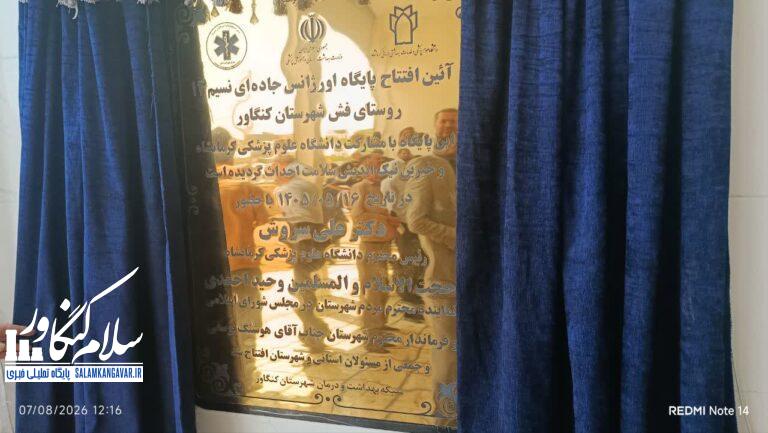 آئین افتتاح پایگاه اورژانس جاده‌ای نسیم ۱۲
روستای فش شهرستان کنگاور
این پایگاه با مشارکت دانشگاه علوم پزشکی کرمانشاه
و خیرین نیک اندیش سلامت احداث گردیده است
در تاریخ ۱۴۰۵/۰۵/۱۶ با حضور
دکتر علی سروش
رئیس محترم دانشگاه علوم پزشکی کرمانشاه
حجت الاسلام و المسلمین وحید احمدی
نماینده محترم مردم شهرستان در مجلس شورای اسلامی
و فرماندار محترم شهرستان جناب آقای هوشنگ
و جمعی از مسئولان استانی و شهرستان افتتاح شد
شبکه بهداشت و درمان شهرستان کنگاور
سلام کنگاور
پایگاه تحلیلی خبری SALAMKANGAVAR.IR
07/08/2026 12:16
REDMI Note 14